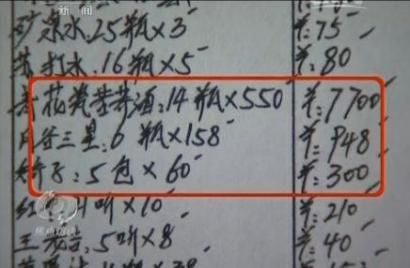 新闻
矿泉水:25瓶×3 ¥:75
苏打水:16瓶×5 ¥:80
花瓷 酒:14瓶×550 ¥:7700
三星:6瓶×158 ¥:948
5包×60 ¥:300
听×10 ¥:210
王老吉:5听×8 ¥:40
焦点访谈